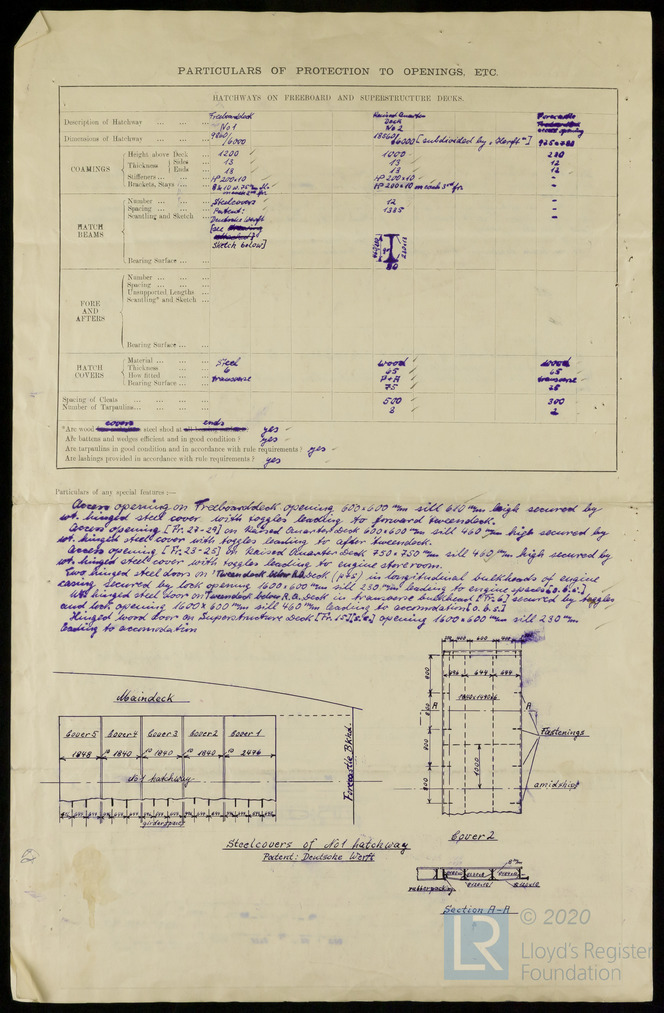 PARTICULARS OF PROTECTION TO OPENINGS, ETC.
HATCHWAYS ON FREEBOARD AND SUPERSTRUCTURE DECKS.
Description of Hatchway ... ... ... Freeboarddeck No 1 Raised Quarter Deck No 2 Forecastle access opening
Dimensions of Hatchway ... ... /6000 [subdivided by 925x780
COAMINGS
Height above Deck ... 1200 1000 230
Thickness Sides ... 13 13 12
Ends ... 13 13 12
Stiffeners ... ... HP 200x10 HP 200x10 -
Brackets, Stays ... HP 200x10 in each 3rd fr. -
HATCH BEAMS
Number ... ... Steelcovers 12 -
Spacing ... ... Patent: 1335 -
Scantling and Sketch ... Deutsche Werft -
[see
Sketch below]
Bearing Surface ... ... 80
FORE AND AFTERS
Number ... ...
Spacing ... ...
Unsupported Lengths ...
Scantling* and Sketch ...
Bearing Surface ... ...
HATCH COVERS
Material ... ... Steel wood wood
Thickness ... ... 6 65 65
How fitted ... ... transverse F+A transverse
Bearing Surface ... ... 75
Spacing of Cleats ... ... ... 500 300
Number of Tarpaulins ... ... ... 3 2
*Are wood covers steel shod at ends yes
Are battens and wedges efficient and in good condition? yes
Are tarpaulins in good condition and in accordance with rule requirements? yes
Are lashings provided in accordance with rule requirements? yes
Particulars of any special features :—
Access opening on Freeboarddeck opening 600x600 mm sill 610 mm high secured by
wt. hinged steel cover with toggles leading to forward tweendeck.
Access opening [Fr. 27-29] on Raised Quarter Deck 600x600 mm sill 460 mm high secured by
wt. hinged steel cover with toggles leading to after tweendeck.
Access opening [Fr. 23-25] on Raised Quarter Deck 750x750 mm sill 460 mm high secured by
wt. hinged steel cover with toggles leading to engine storeroom.
Two hinged steel doors on Tweendeck below R.A. Deck in longitudinal bulkheads of engine
casing secured by lock opening 1600x600 mm sill 230 mm leading to engine space
Wt. hinged steel door on Tweendeck below R.A. Deck in transverse bulkhead [Fr. 6] secured by toggles
and lock opening 1600x600 mm sill 460 mm leading to accomodation
Hinged wood door on Superstructure Deck [Fr. 15] opening 1600x600 mm sill 230 mm
leading to accomodation
Maindeck
Cover 5 Cover 4 Cover 3 Cover 2 Cover 1
1848 1840 1840 1840 2476
No 1 hatchway
girder space
Forecastle Bkhd.
Steelcovers of No 1 hatchway
Patent: Deutsche Werft
696 644 644
800
A A
860
800
800
1000
Fastenings
amidships
Cover 2
rubberpacking
Section A-A
LR © 2020
Lloyd's Register
Foundation